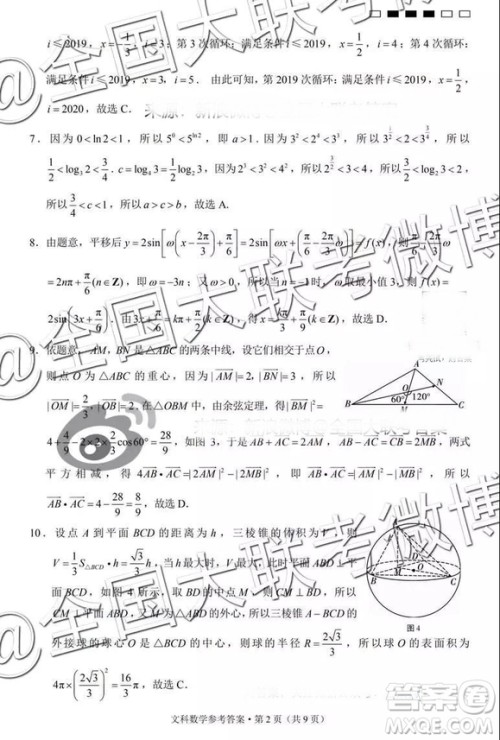 i≤2019，x=-1/3，i=3；第3次循环：满足条件 i≤2019，x=1/2，i=4；第4次循环：
满足条件 i≤2019，x=3，i=5．由此可知，第2019次循环：满足条件 i≤2019，x=1/2，
i=2020，故选C．
7．因为0<ln2<1，所以5^0<5^{ln2}，即a>1．因为3^2<2^4<3^3，所以
1/2<log_3 2<3/4．c=log_4 3=1/2 log_2 3，因为2^3<3^2<4^2，所以 <3<4，所以 log_2 3<2，
所以3/4<c<1，所以a>c>b，故选A．
8．由题意，平移后y=2sin[ω(x-2π/3)+π/6]=2sin[ωx+ =f(x)，则
=2nπ+π/6(n∈Z)，即ω=-3n；又ω>0，所以当n=-1时，ω取最小值3，则f(x)=
2sin(3x+π/6)．由3x+π/6=kπ+π/2(k∈Z)，得x=kπ/3+π/9(k∈Z)，故选D．
9．依题意，AM，BN是△ABC的两条中线，设它们相交于点O，
则点O为△ABC的重心，因为|AM|=2，|BN|=3，所以
|OM|=2/3，|OB|=2．在△OBM中，由余弦定理，得|MB|²=
4+4/9-2×2×2/3cos60°=28/9，如图3，于是AB+AC=2AM，AB-AC=CB=2MB，两式
平方相减，得4AB·AC=|2AM|²-|2MB|²，即AB·AC=|AM|²-|MB|²，所以
AB·AC=4-28/9=8/9，故选D．
A
N
60°
120°
10．设点A到平面BCD的距离为h，三棱锥的体积为V，则
V=1/3 S△BCD·h=√3/3 h，当h最大时，V最大，此时平面ABD⊥平
面BCD，如图4，所示，取BD的中点M，则CM⊥BD，所以
CM⊥平面ABD，又AM=BM=DM，所以三棱锥A-BCD的
外接球的球心O是△BCD的中心，则球的半径R=2√3/3，所以球O的表面积为
4π×(2√3/3)²=16/3π，故选C．
A
B
C
M
O
图4
文科数学参考答案·第2页（共9页）
@全国大联考微博
@全国大联考微博
答案圈